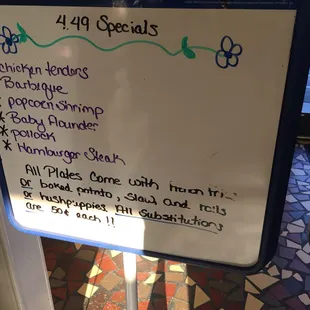 4.49 Specials
chicken tenders
Barbeque
* popcorn shrimp
* Baby flounder
* pollock
* Hamburger Steak
All Plates Come with french fries
or baked potato, slaw and rolls
or hushpuppies All Substitutions
are 50¢ each !!